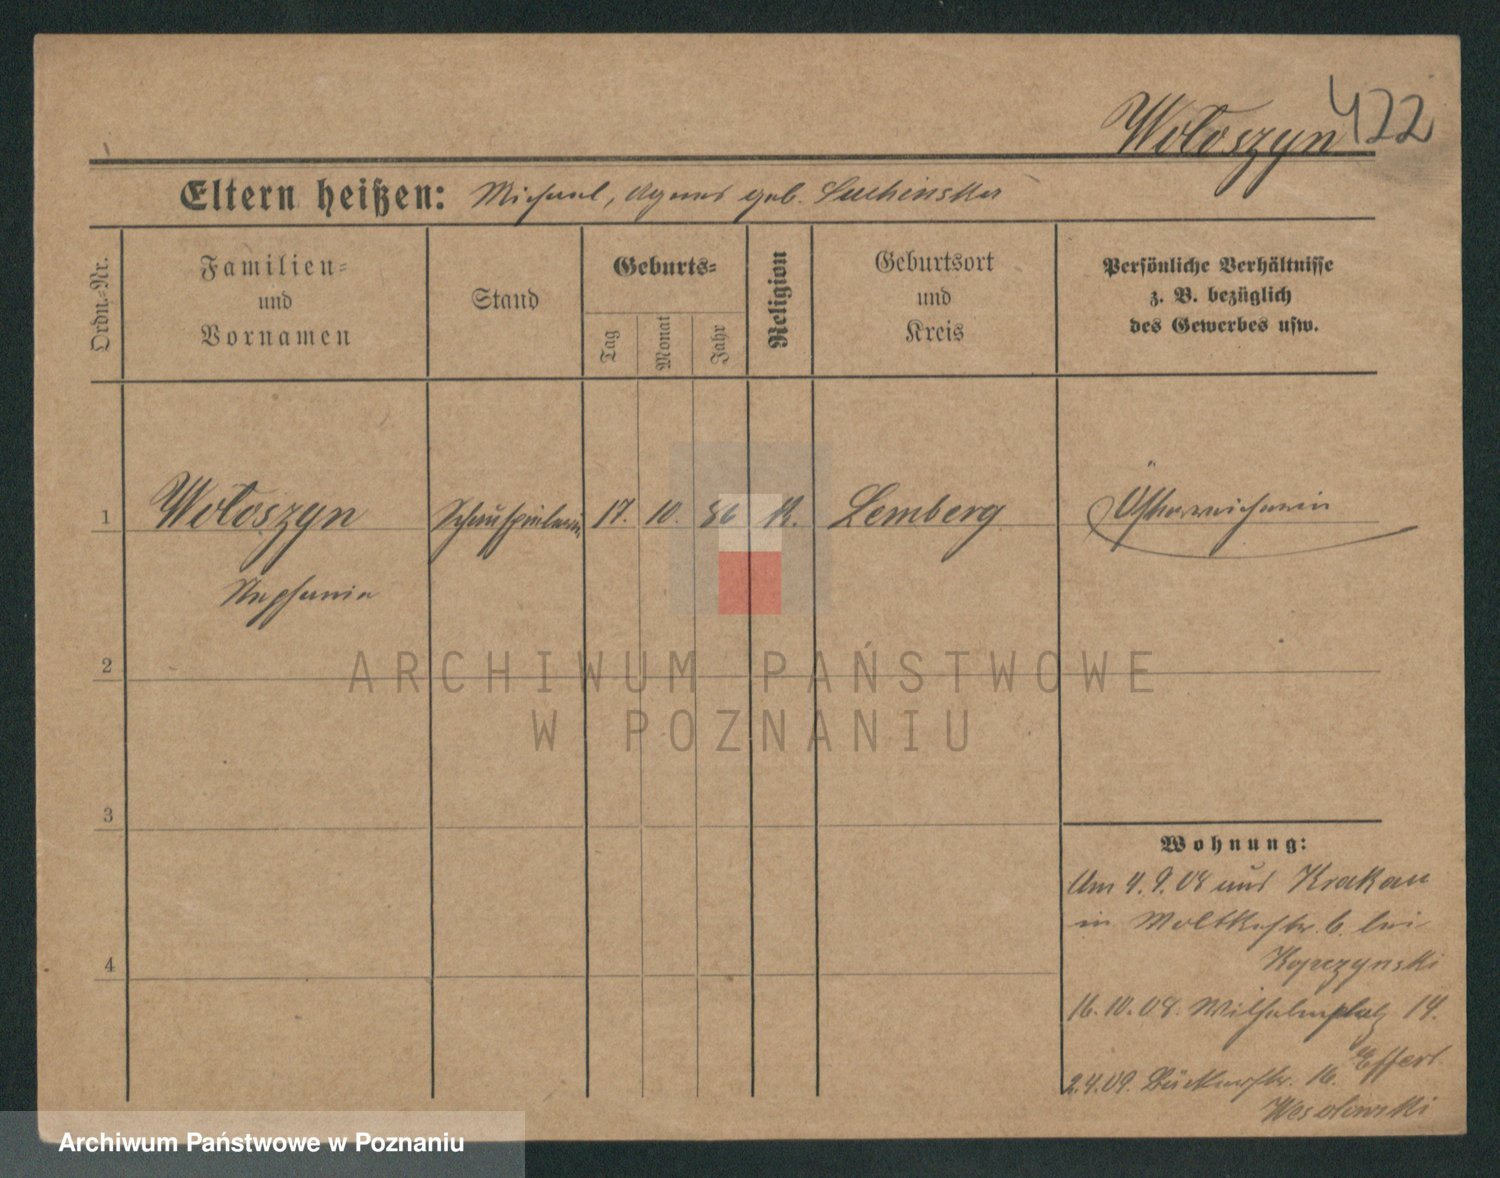 Wołoszyn 422
Eltern heißen: Michael, Agnes geb. Suchinska
Ordn.-Nr.
Familien-
und
Vornamen
Stand
Geburts-
Tag
Monat
Jahr
Religion
Geburtsort
und
Kreis
Persönliche Verhältnisse
z. B. bezüglich
des Gewerbes usw.
1 Wołoszyn Schauspielerin 17. 10. 86 K. Lemberg Österreicherin
Stephanie
2
3
4
ARCHIWUM PAŃSTWOWE
W POZNANIU
Wohnung:
Am 4.9.08 aus Krakau
in Moltkestr. 6. bei
Kopczynski
16.10.08. Wilhelmplatz 14.
2.4.09. Bäckerstr. 16.
Wesołowski
Archiwum Państwowe w Poznaniu